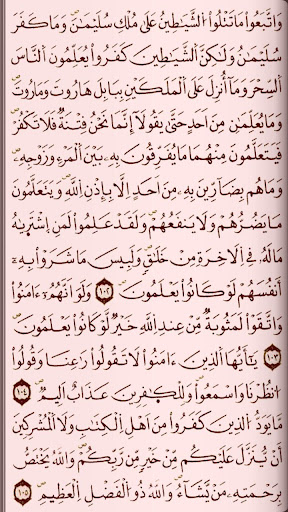 وَاتَّبَعُواْ مَا تَتْلُواْ الشَّيَٰطِينُ عَلَىٰ مُلْكِ سُلَيْمَٰنَ وَمَا كَفَرَ
سُلَيْمَٰنُ وَلَٰكِنَّ الشَّيَٰطِينَ كَفَرُواْ يُعَلِّمُونَ النَّاسَ
السِّحْرَ وَمَآ أُنزِلَ عَلَى الْمَلَكَيْنِ بِبَابِلَ هَٰرُوتَ وَمَٰرُوتَ
وَمَا يُعَلِّمَٰنِ مِنَ اَحَدٍ حَتَّىٰ يَقُولَآ إِنَّمَا نَحْنُ فِتْنَةٌ فَلَا تَكْفُرْ
فَيَتَعَلَّمُونَ مِنْهُمَا مَا يُفَرِّقُونَ بِهِۦ بَيْنَ الْمَرْءِ وَزَوْجِهِۦ
وَمَا هُم بِضَآرِّينَ بِهِۦ مِنَ اَحَدٍ اِلَّا بِإِذْنِ اللَّهِ وَيَتَعَلَّمُونَ
مَا يَضُرُّهُمْ وَلَا يَنفَعُهُمْ وَلَقَدْ عَلِمُواْ لَمَنِ اشْتَرَىٰهُ
مَا لَهُۥ فِي الَاخِرَةِ مِنْ خَلَٰقٍ وَلَبِيسَ مَا شَرَوْاْ بِهِۦٓ
أَنفُسَهُمْ لَوْ كَانُواْ يَعْلَمُونَ ١٠٢ وَلَوَ اَنَّهُمُۥٓ ءَامَنُواْ
وَاتَّقَوْاْ لَمَثُوبَةٌ مِّنْ عِندِ اللَّهِ خَيْرٌ لَّوْ كَانُواْ يَعْلَمُونَ
١٠٣ يَٰٓأَيُّهَا الَّذِينَ ءَامَنُواْ لَا تَقُولُواْ رَٰعِنَا وَقُولُواْ
انظُرْنَا وَاسْمَعُواْ وَلِلْكَٰفِرِينَ عَذَابٌ اَلِيمٌ ١٠٤
مَّا يَوَدُّ الَّذِينَ كَفَرُواْ مِنَ اَهْلِ الْكِتَٰبِ وَلَا الْمُشْرِكِينَ
أَنْ يُّنَزَّلَ عَلَيْكُم مِّنْ خَيْرٍ مِّن رَّبِّكُمْ وَاللَّهُ يَخْتَصُّ
بِرَحْمَتِهِۦ مَنْ يَّشَآءُ وَاللَّهُ ذُو الْفَضْلِ الْعَظِيمِ ١٠٥